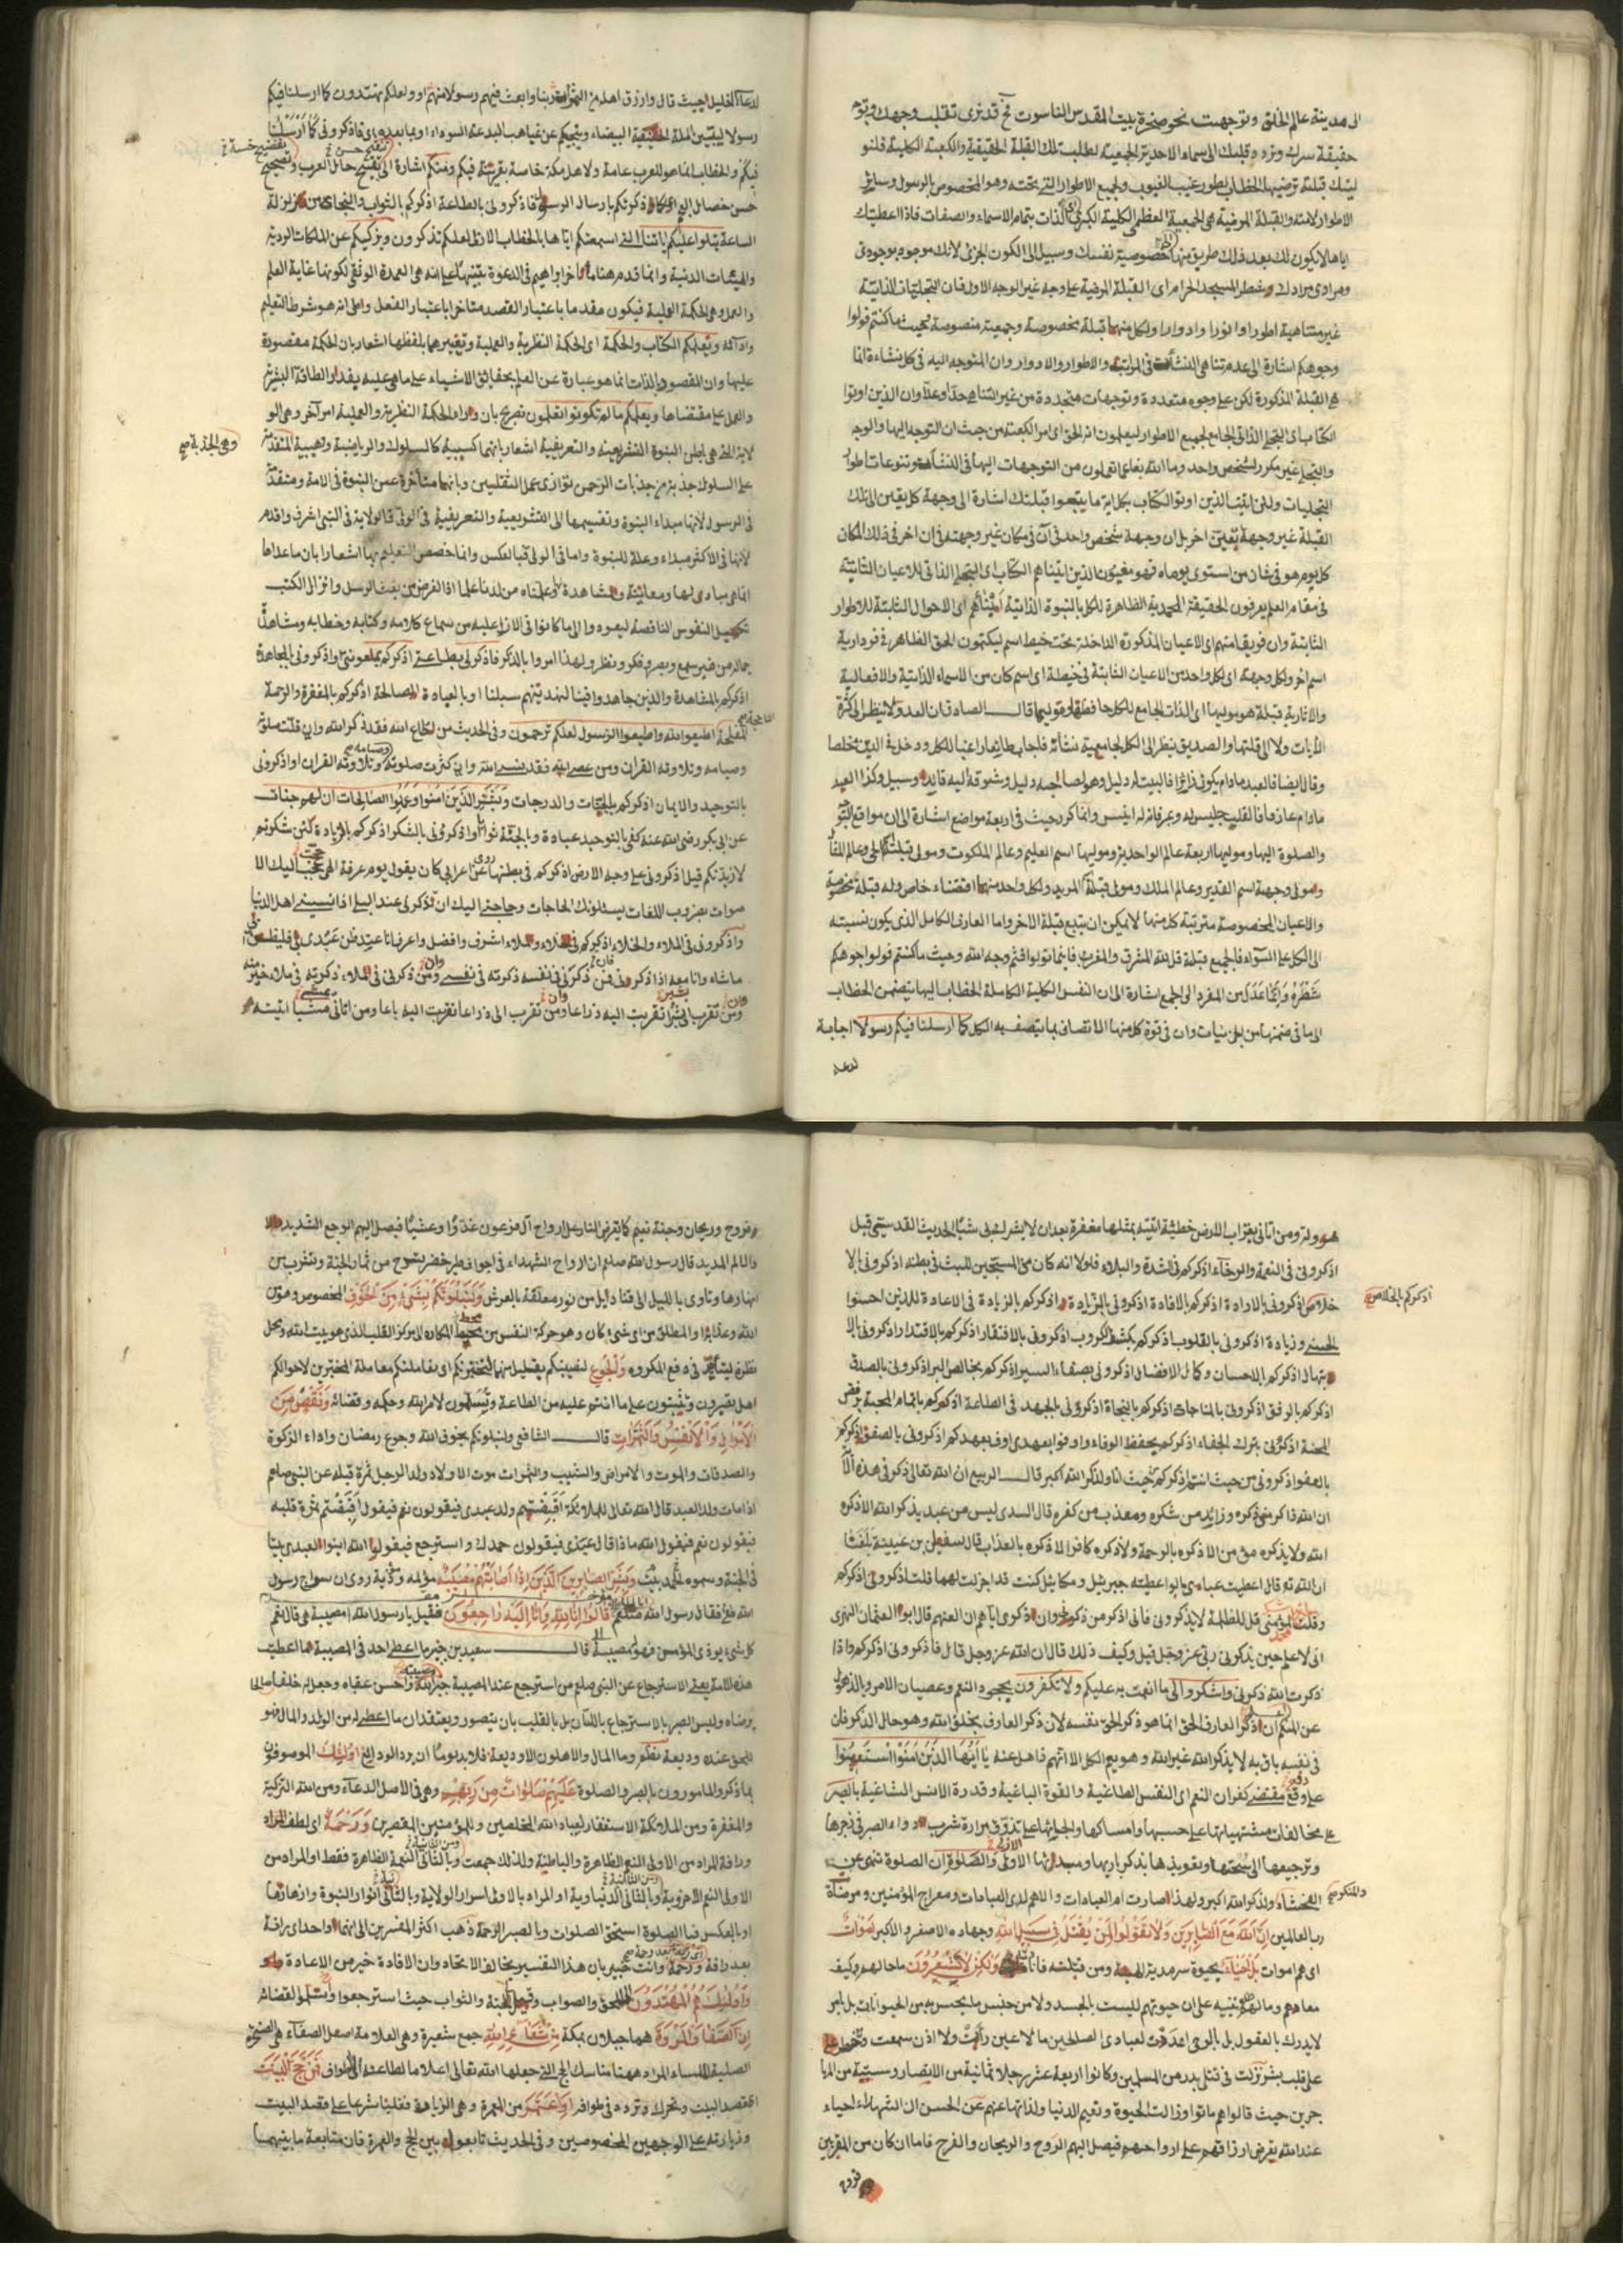 الى مدينة عالم الخلق وتوجهت نحو صخرة بيت المقدس الناسوت قد نرى تقلب وجهك وتوجه
حقيقة سرك وتردد قلبك الى سماء الاحدية الجمعية لطلب تلك القبلة الحقيقية والكعبة الكلية فلنو
لينك قبلة ترضيها الخطاب لطور غيب الغيوب ولجميع الاطوار التى تحته وهو المخصوص بالرسول وسائر
الاطوار لامته والقبلة المرضية هى الجمعية العظمى الكلية الكبرى الذات بتمام الاسماء والصفات فاذا اعطيتك
اياها لا يكون لك بعد ذلك طريق منها خصوصية نفسك وسبيل الى الكون الجزئى لانك موجود بوجودى
ومرادى مرادك شطر المسجد الحرام اى القبلة المرضية على وجه غير الوجه الاول فان التجليات الذاتية
غير متناهية اطوارا وانوارا وادوارا ولكل منها قبلة مخصوصة وجمعية منصوصة فحيث ما كنتم فولوا
وجوهكم اشارة الى عدم تناهى النشآت فى المراتب والاطوار والادوار وان المتوجه اليه فى كل نشاءة انما
هى القبلة المذكورة لكن على وجوه متعددة وتوجهات متجددة من غير التناهى حدا وعدا وان الذين اوتوا
الكتاب اى التجلى الذاتى الجامع لجميع الاطوار ليعلمون انه الحق اى امر الكعبة من حيث ان التوجه اليها والوجه
والتجلى غير مكرر لشخص واحد وما الله بغافل عما تعملون من التوجهات اليها فى النشآت وتنوعات اطوار
التجليات ولئن اتيت الذين اوتوا الكتاب بكل اية ما يتبعوا قبلتك اشارة الى وجهة كل يقين الى تلك
القبلة غير وجهة تعين اخر بل ان وجهة شخص واحد فى آن فى مكان غير وجهته فى ان اخر فى ذلك المكان
كل يوم هو فى شان من استوى يوماه فهو مغبون الذين اتيناهم الكتاب اى التجلى الذاتى للاعيان الثابتة
فى مقام العلم يعرفون الحقيقة المحمدية الظاهرة للكل بالنبوة الذاتية ابنائهم اى الاحوال الثابتة للاطوار
الثابتة وان فريقا منهم اى الاعيان المذكورة الداخلة تحت حيطة اسم ليكتمون الحق الظاهر فى نور دارية
اسم اخر ولكل وجهة اى لكل واحد من الاعيان الثابتة فى حيطة اى اسم كان من الاسماء الذاتية والافعالية
والاثارية قبلة هو موليها اى الذات الجامع للكل
الآيات ولا الى قلتها والصديق ينظر الى الكل لجامعية نشأته
ما دام عارفا فالقلب جليس له وعرفانه له انيس وانما كرر حيث فى اربعة مواضع اشارة الى ان مواقع التوجه
والصلوة اليها وموليها اربعة عالم الواحدية وموليها اسم العليم وعالم الملكوت ومولى قبلته الحى وعالم المثال
ومولى وجهة اسم القدير وعالم الملك ومولى قبلته المريد ولكل واحد منها اقتضاء خاص وله قبلة مخصوصة
والاعيان المخصوصة مترتبة كل منها لا يمكن ان يتبع قبلة الاخر واما العارف الكامل الذى يكون نسبته
الى الكل على السواء فالجميع قبلة قل لله المشرق والمغرب فاينما تولوا فثم وجه الله وحيث ما كنتم فولوا وجوهكم
شطره وانما عدل من المفرد الى الجمع اشارة الى ان النفس الكلية الكاملة الخطاب اليها يتضمن الخطاب
الى ما فى ضمنها من الجزئيات وان فى قوة كل منها الاتصاف بما يتصف به الكل كما ارسلنا فيكم رسولا اجابة
لدعاء
لدعاء الخليل حيث قال وارزق اهله من الثمرات ربنا وابعث فيهم رسولا منهم او ولعلكم تهتدون كما ارسلنا فيكم
رسولا ليبين الملة الحنيفية البيضاء وينجيكم عن غياهب البدعة السوداء او بما بعده اى فاذكرونى كما ارسلنا
فيكم والخطاب انما هو للعرب عامة ولاهل مكة خاصة بقرينة فيكم ومنكم اشارة الى تقبيح حال العرب
حسن خصال كما ذكرتكم بارسال الرسول فاذكرونى بالطاعة اذكركم بالثواب والنجاة من زلزلة
الساعة يتلوا عليكم اياتنا التى اسمعتكم اياها بالخطاب الازلى لعلكم تذكرون ويزكيكم عن الملكات الردية
والهيئات الدنية وانما قدم هنا ما اخر ابراهيم فى الدعوة تنبيها على انه هى العمدة الوثقى لكونها غاية العلم
والعمل وهى الحكمة العملية فيكون مقدما باعتبار القصد متاخرا باعتبار الفعل وعلى انه هو شرط التعليم
وادآئه ويعلمكم الكتاب والحكمة اى الحكمة النظرية والعملية وتعبيرها بلفظها اشعار بان الحكمة مقصورة
عليها وان المقصود بالذات انما هو عبارة عن العلم بحقائق الاشياء على ما هى عليه بقدر الطاقة البشرية
والعمل على مقتضاها ويعلمكم ما لم تكونوا تعلمون تصريح بان وراء الحكمة النظرية والعملية امر آخر وهى الو
لاية التى هى باطن النبوة التشريعية والتعريفية اشعار بانهما كسبية كالسلوك والرياضة وهبية المتقدمة
وهى الجذبة صح
على السلوك جذبة من جذبات الرحمن توازى عمل الثقلين وبانها متأخرة عن النبوة فى الامة ومتقدمة
فى الرسول لانها مبداء النبوة وتقسيمها الى التشريعية والتعريفية فى الولى فالولاية فى النبى اشرف واقدم
لانها فى الاكثر مبداء وعلة للنبوة واما فى الولى فبالعكس وانما خصص التعليم بها اشعارا بان ما عداها
انما هى مبادى لها ومعاينة ومشاهدة وعلمناه من لدنا علما اذ الغرض من بعث الرسل وانزال الكتب
تكميل النفوس الناقصة ليعودوا الى ما كانوا فى الازل عليه من سماع كلامه وكتابه وخطابه ومشاهدة
جماله من غير سمع وبصر وفكر ونظر ولهذا امروا بالذكر فاذكرونى بطاعتى اذكركم بمعونتى واذكرونى بالمجاهدة
اذكركم بالمشاهدة والذين جاهدوا فينا لنهدينهم سبلنا او بالعبادة الصالحة اذكركم بالمغفرة والرحمة
اطيعوا الله واطيعوا الرسول لعلكم ترحمون وفى الحديث من اطاع الله فقد ذكر الله وان قلت صلوته
وصيامه وتلاوته القران ومن عصى الله فقد نسى الله وان كثرت صلوته وتلاوته القران او اذكرونى
بالتوحيد والايمان اذكركم بالجنات والدرجات وبشر الذين امنوا وعملوا الصالحات ان لهم جنات
عن ابى بكر رضى الله عنه كفى بالتوحيد عبادة وبالجنة ثوابا واذكرونى بالشكر اذكركم بالزيادة لئن شكرتم
لازيدنكم قيل اذكرونى على وجه الارض اذكركم فى بطنها عن اعرابى كان يقول يوم عرفة الهى عجت اليك الا
صوات بضروب اللغات يسئلونك الحاجات وحاجتى اليك ان تذكرنى عند البلى اذا نسينى اهل الدنيا
واذكرونى فى الملاء والخلاء اذكركم فى الخلاء والملاء اشرف وافضل واعرف انا عند ظن عبدى بى فليظن بى
ما شاء وانا معه اذا ذكرنى فمن ذكرنى فى نفسه ذكرته فى نفسى ومن ذكرنى فى الملاء ذكرته فى ملاء خير منه
ومن تقرب الى شبرا تقربت اليه ذراعا ومن تقرب الى ذراعا تقربت اليه باعا ومن اتانى مشيا اتيته
هرولة ومن اتانى بقراب الارض خطيئة اتيته بمثلها مغفرة بعد ان لا يشرك بى شيئا الحديث القدسى قيل
اذكرونى فى النعمة والرخاء اذكركم فى الشدة والبلاء فلولا انه كان من المسبحين للبث فى بطنه اذكرونى بالا
خلاص اذكرونى بالارادة اذكركم بالافادة اذكرونى بالزيادة اذكركم بالزيادة فى الاعادة للذين احسنوا
اذكركم بالخلاص
الحسنى وزيادة اذكرونى بالقلوب اذكركم بكشف الكروب اذكرونى بالافتقار اذكركم بالاقتدار اذكرونى بالا
بتهال اذكركم بالاحسان وكمال الافضال اذكرونى بصفاء السر اذكركم بخالص البر اذكرونى بالصدق
اذكركم بالرفق اذكرونى بالمناجات اذكركم بالنجاة اذكرونى بالجهد فى الطاعة اذكركم باتمام المحبة برفض
المحنة اذكرونى بترك الجفاء اذكركم بحفظ الوفاء واوفوا بعهدى اوف بعهدكم اذكرونى بالصفو اذكركم
بالعفو اذكرونى من حيث انتم اذكركم من حيث انا ولذكر الله اكبر قال الربيع ان الله تعالى ذكر فى هذه الآية
ان الله ذاكر من ذكره وزايد من شكره ومعذب من كفره قال السدى ليس من عبد يذكر الله الا ذكره
الله ولا يذكره مؤمن الا ذكره بالرحمة ولا ذكره كافر الا ذكره بالعذاب قال سفين بن عيينة بلغنا
ان الله تع قال اعطيت عبادى ما لو اعطيته جبرئيل وميكائيل كنت قد اجزلت لهما قلت اذكرونى اذكركم
وقلت لموسى قل للظلمة لا يذكرونى فانى اذكر من ذكرنى وان ذكرى اياهم ان العنهم قال ابو العثمان النهدى
انى لاعلم حين يذكرنى ربى عز وجل قيل وكيف ذلك قال ان الله عز وجل قال فاذكرونى اذكركم واذا
ذكرت الله ذكرنى واشكروا لى ما انعمت به عليكم ولا تكفرون بجحود النعم وعصيان الامر وبالذهول
عن المنعم ان ذكر العارف الحق انما هو ذكر الحق نفسه لان ذكر العارف بخلق الله وهو حال الذكر فان
فى نفسه باق به لا يذكر الله غير الله وهو يعم الكل الا انهم ذاهل عنه يا ايها الذين امنوا استعينوا
على دفع مقتضى كفران النعم اى النفس الطاغية والقوة الباغية وقدرة الانس الشاغية بالصبر
على مخالفات مشتهياتها على حبسها وامساكها والجائها على تذوق مرارة شرب دواء الصبر فى فجرها
وترجيعها الى سجنها وتعويذها بذكر ربها ومبدئها الاولى والصلوة ان الصلوة تنهى عن
الفحشاء ولذكر الله اكبر ولهذا صارت ام العبادات والاهم لدى العبادات ومعراج المؤمنين ومرضاة
والمنكر صح
رب العالمين ان الله مع الصابرين ولا تقولوا لمن يقتل فى سبيل الله وجهاده الاصغر والاكبر اموات
اى هم اموات بل احياء بحيوة سرمدية ومن قتلته فانا ديته ولكن لا تشعرون ما حالهم وكيف
معاهم وما لهم تنبيه على ان حيوتهم ليست بالجسد ولا من جنس ما يحس به من الحيوانات بل امر
لا يدرك بالعقول بل بالوحى اعددت لعبادى الصالحين ما لا عين رأت ولا اذن سمعت ولا خطر
على قلب بشر نزلت فى قتلى بدر من المسلمين وكانوا اربعة عشر رجلا ثمانية من الانصار وستة من المها
جرين حيث قالوا هم ماتوا وزالت الحيوة ونعيم الدنيا ولذاتها عنهم عن الحسن ان الشهداء احياء
عند الله يعرض ارزاقهم على ارواحهم فيصل اليهم الروح والريحان والفرح فاما ان كان من المقربين
فروح
فروح وريحان وجنة نعيم كما يعرض النار على ارواح آل فرعون غدوا وعشيا فيصل اليهم الوجع الشديد
والالم المديد قال رسول الله صلعم ان ارواح الشهداء فى اجواف طير خضر تسرح من ثمار الجنة وتشرب من
انهارها وتاوى بالليل الى قناديل من نور معلقة بالعرش ولنبلونكم بشىء من الخوف المخصوص وهو من
الله وعذابه او المطلق من اى شىء كان وهو حركة النفس من محيط المكان الى مركز القلب الذى هو بيت الله ومحل
نظره فى دفع المكروه والجوع لنصيبنكم بقليل منها لنختبرنكم اى نعاملنكم معاملة المختبرين لاحوالكم
اهل تصبرون وتثبتون على ما انتم عليه من الطاعة وتسلمون لامر الله وحكمه وقضائه ونقص من
الاموال والانفس والثمرات قال الشافعى ولنبلونكم بخوف الله وجوع رمضان واداء الزكوة
والصدقات والموت والامراض والشيب والثمرات موت الاولاد ولد الرجل ثمرة قلبه عن النبى صلعم
اذا مات ولد العبد قال الله تعالى للملائكة اقبضتم ولد عبدى فيقولون نعم فيقول اقبضتم ثمرة قلبه
فيقولون نعم فيقول الله ماذا قال عبدى فيقولون حمدك واسترجع فيقول الله ابنوا لعبدى بيتا
فى الجنة وسموه الحمد بيت وبشر الصابرين الذين اذا اصابتهم مصيبة مؤلمة روى ان سراج رسول
الله طفئ فقال رسول الله قالوا انا لله وانا اليه راجعون فقيل يا رسول الله امصيبة هى قال نعم
كل شىء يوذى المؤمن فهو له مصيبة قال سعيد بن جبير ما اعطى احد فى المصيبة ما اعطيت
هذه الامة يعنى الاسترجاع عن النبى صلعم من استرجع عند المصيبة جبر الله مصيبته واحسن عقباه وجعل له خلفا صالحا
يرضاه وليس الصبر بالاسترجاع باللسان بل بالقلب بان يتصور ويعتقد ان ما اعطى له من الولد والمال هو
للحق عنده وديعة نظم وما المال والاهلون الا وديعة فلا بد يوما ان يرد الودايع اولئك الموصوفون
بما ذكر والمأمورون بالصبر والصلوة عليهم صلوات من ربهم وهى فى الاصل الدعاء ومن الله التزكية
والمغفرة ومن الملائكة الاستغفار لعباد الله المخلصين والمؤمنين المقصرين ورحمة اى لطف
ورافة المراد من الاولى النعم الظاهرة والباطنة ولذلك جمعت وبالثانى النعمة الظاهرة فقط او المراد من
الاولى النعم الاخروية وبالثانى الدنياوية او المراد بالاولى اسرار الولاية وبالثانى انوار النبوة وازهارها
او بالعكس فبالصلوة استحق الصلوات وبالصبر الرحمة ذهب اكثر المفسرين الى انهما واحد اى رافة
بعد رافة ورحمة وانت خبير بان هذا التفسير يخالف الاتحاد وان الافادة خير من الاعادة
واولئك هم المهتدون للحق والصواب وقيل الجنة والثواب حيث استرجعوا وسلموا لقضائه
ان الصفا والمروة هما جبلان بمكة من شعائر الله جمع شعيرة وهى العلامة اصل الصفاء هى الصخرة
الصلبة الملساء المراد ههنا مناسك الحج التى جعلها الله تعالى اعلاما لطاعته فمن حج البيت
اى قصد البيت وتحرك وتردد فى طوافه او اعتمر من العمرة وهى الزيارة فغلبا شرعا على قصد البيت
وزيارته على الوجهين المخصوصين وفى الحديث تابعوا بين الحج والعمرة فان متابعة ما بينهما